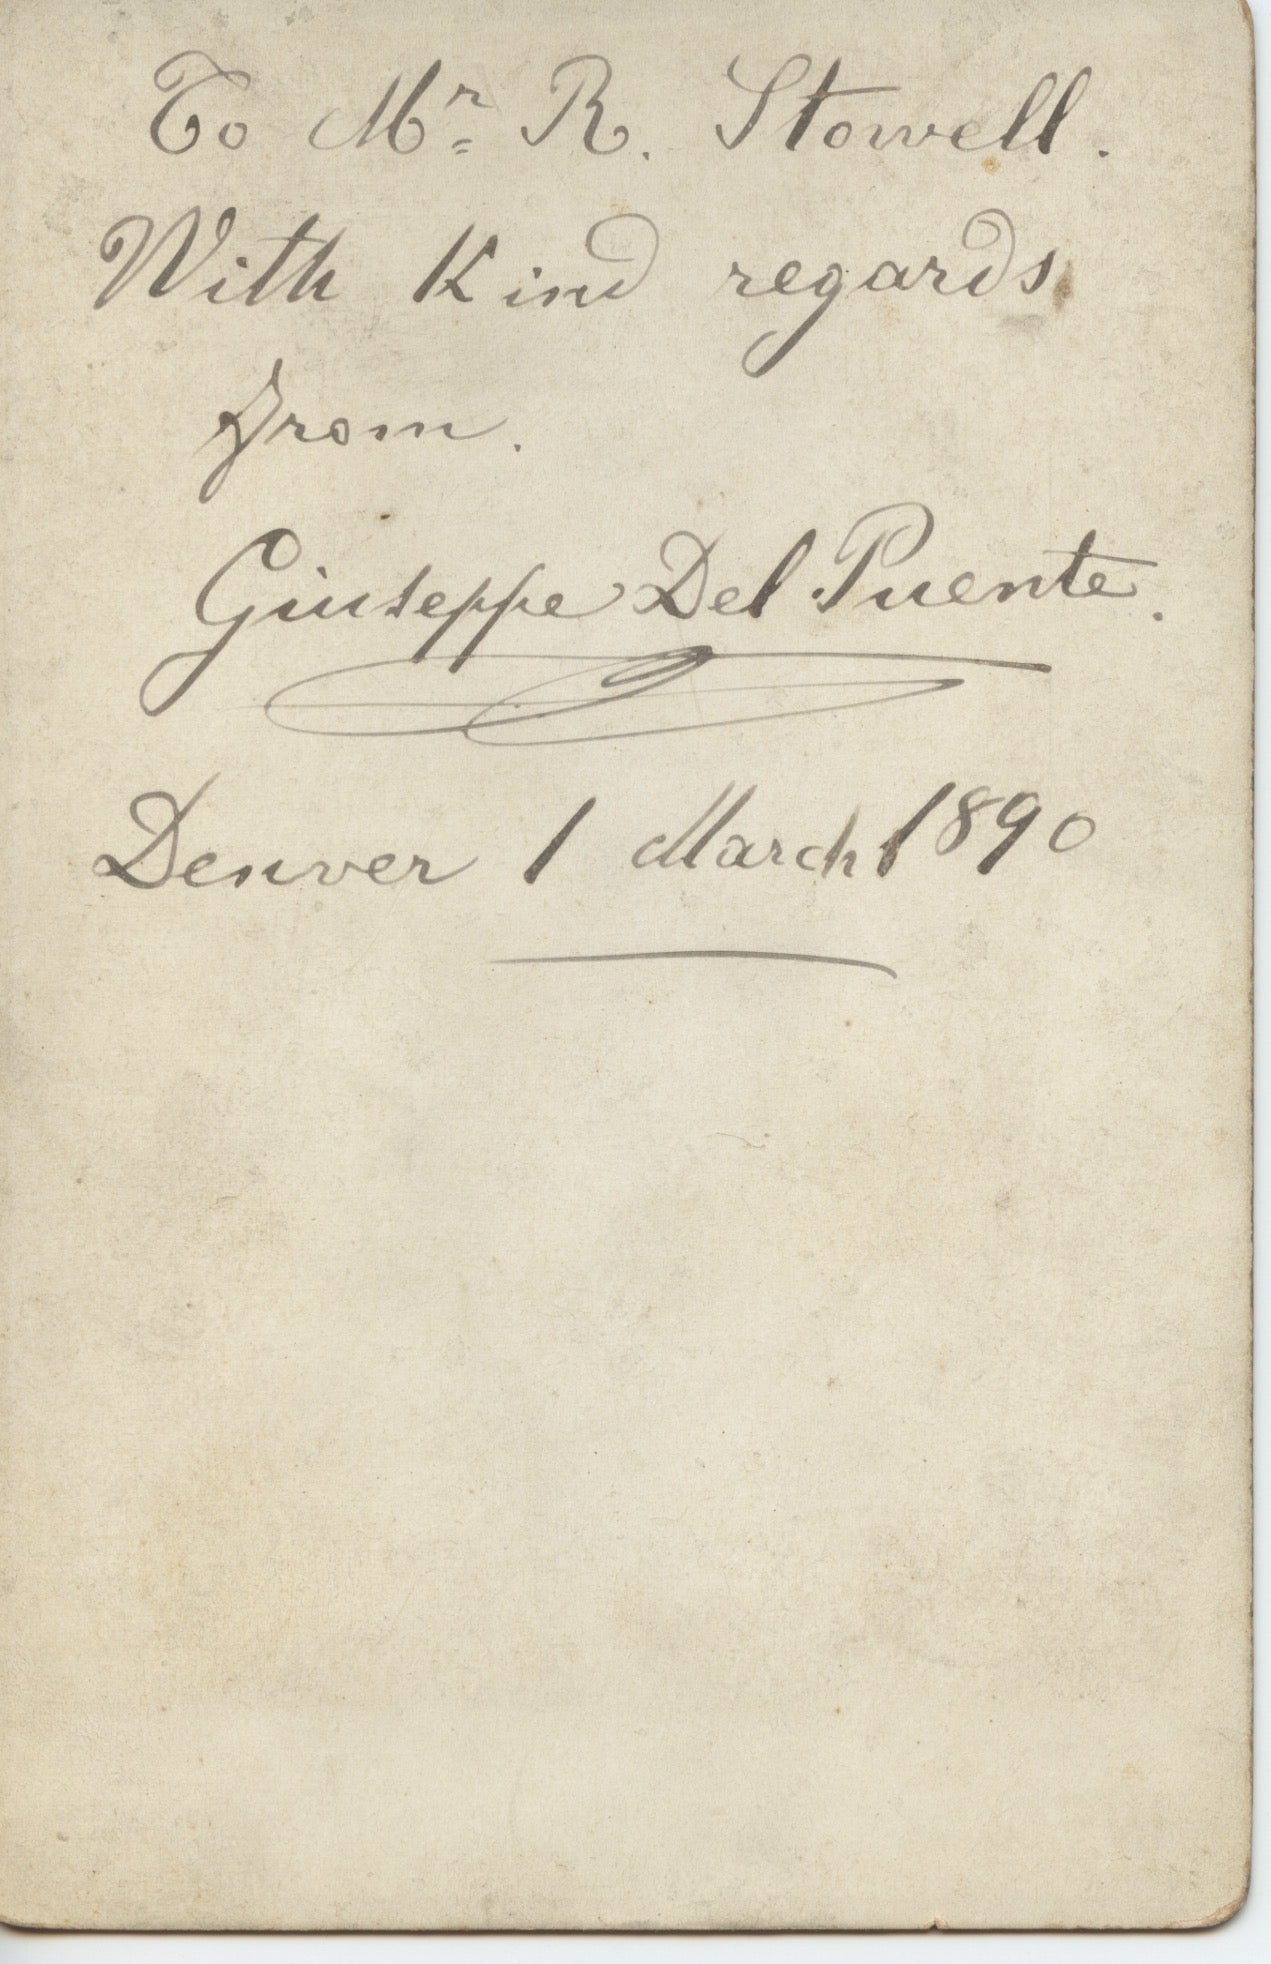 To Mr. R. Stowell.
With Kind regards
from.
Giuseppe Del Puente.
Denver 1 March 1890